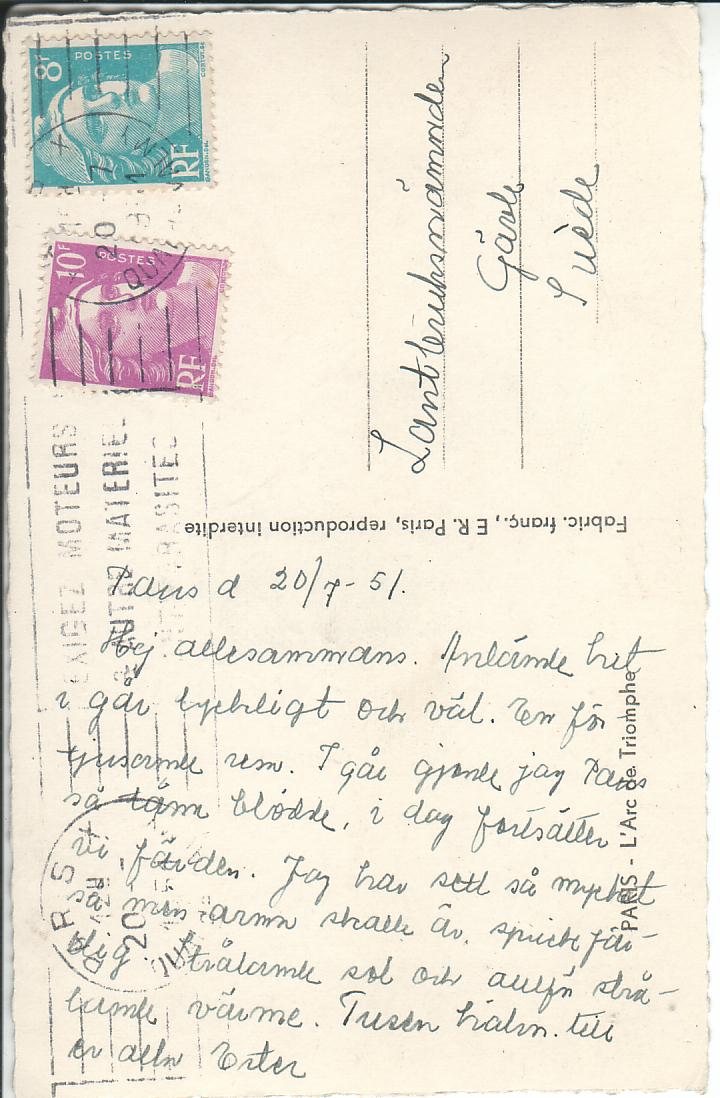 8F
POSTES
RF
10F
POSTES
RF
EXIGEZ MOTEURS
& AUTRE MATERIEL
PARIS
20
Lantbruksnämnden
Gävle
Suède
Fabric. franç., E R. Paris, reproduction interdite
PARIS - L'Arc de Triomphe
Paris d 20/7-51.
Hej allesammans. Anlände hit
i går lyckligt och väl. En för-
tjusande resa. I går gjorde jag Paris
så tårna blödde, i dag fortsätter
vi färden. Jag har sett så mycket
så min arma skalle är sprickfär-
dig. Strålande sol och strå-
lande värme. Tusen hälsn. till
er alla Ester